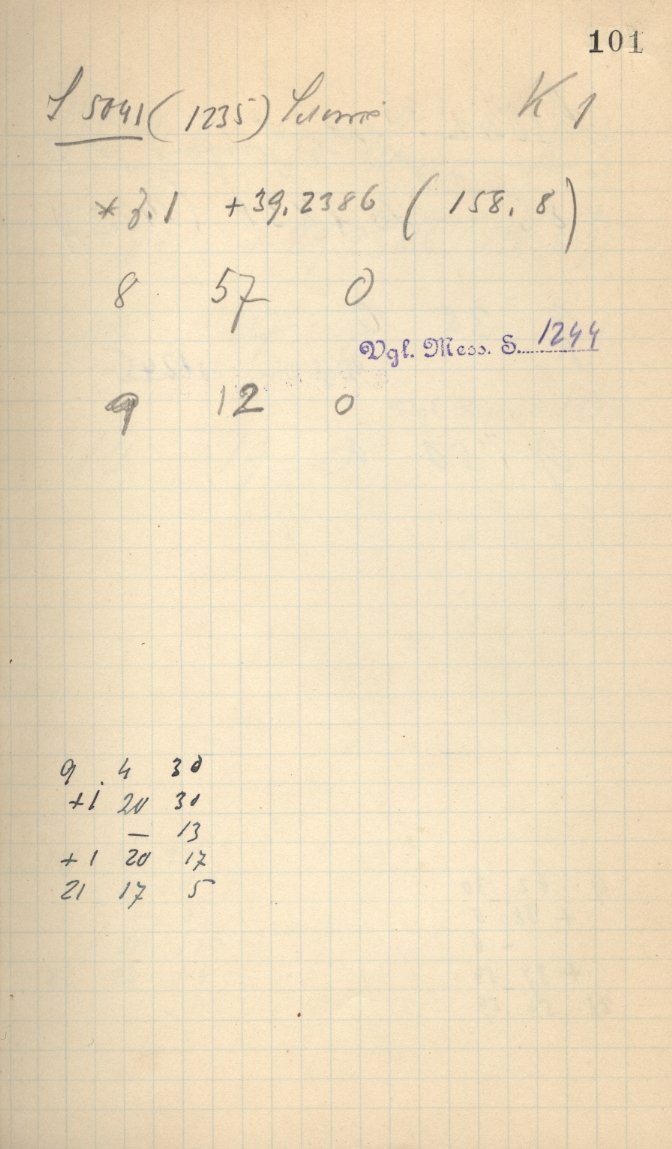 101
5041 (1235) K 1
* z. 1 +39.2386 (158.8)
8 57 0
Vgl. Mess. S. 1244
9 12 0
9 4 30
+1 20 30
— 13
+1 20 17
21 17 5